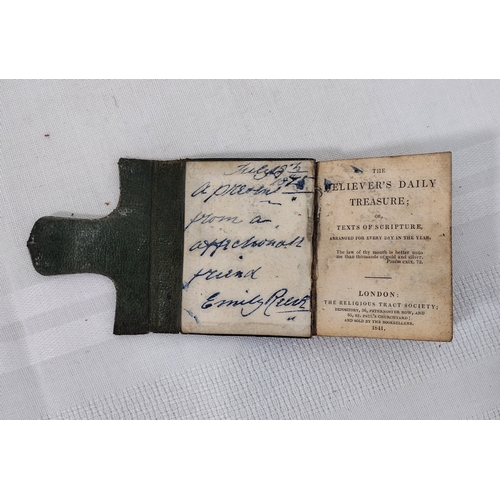 July 13th
1875
A present
from a
affectionate
friend
Emily
THE
BELIEVER'S DAILY
TREASURE;
OR,
TEXTS OF SCRIPTURE,
ARRANGED FOR EVERY DAY IN THE YEAR.
The law of thy mouth is better unto
me than thousands of gold and silver.
Psalm cxix. 72.
LONDON:
THE RELIGIOUS TRACT SOCIETY;
DEPOSITORY, 56, PATERNOSTER ROW, AND
65, ST. PAUL'S CHURCHYARD;
AND SOLD BY THE BOOKSELLERS.
1841.